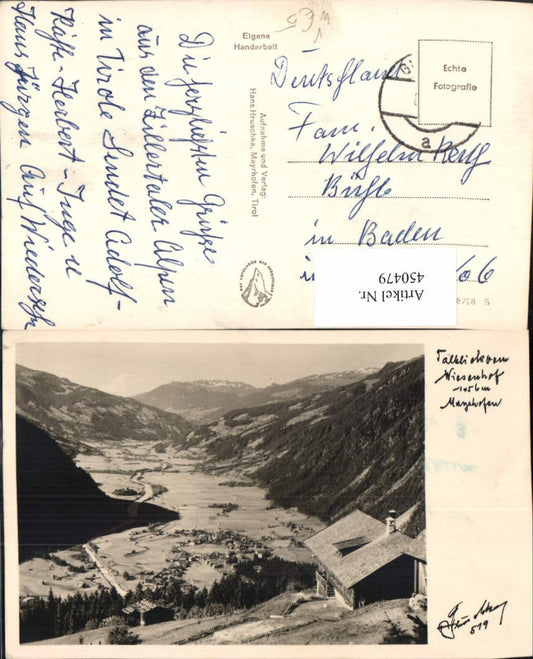 Eigene
Handarbeit
Echte
Fotografie
Deutschland
Fam.
Wilhelm
Bühl
in Baden
Aufnahme und Verlag:
Hans Hruschka, Mayrhofen, Tirol
Die herzlichsten Grüße
aus den Zillertaler Alpen
in Tirol Sendet Adolf-
Käthe-Herbert-Inge u
Hans Jürgen Auf Wiederseh
a
Artikel Nr.
450479
Talblick vom
Wiesenhof
Mayrhofen
519